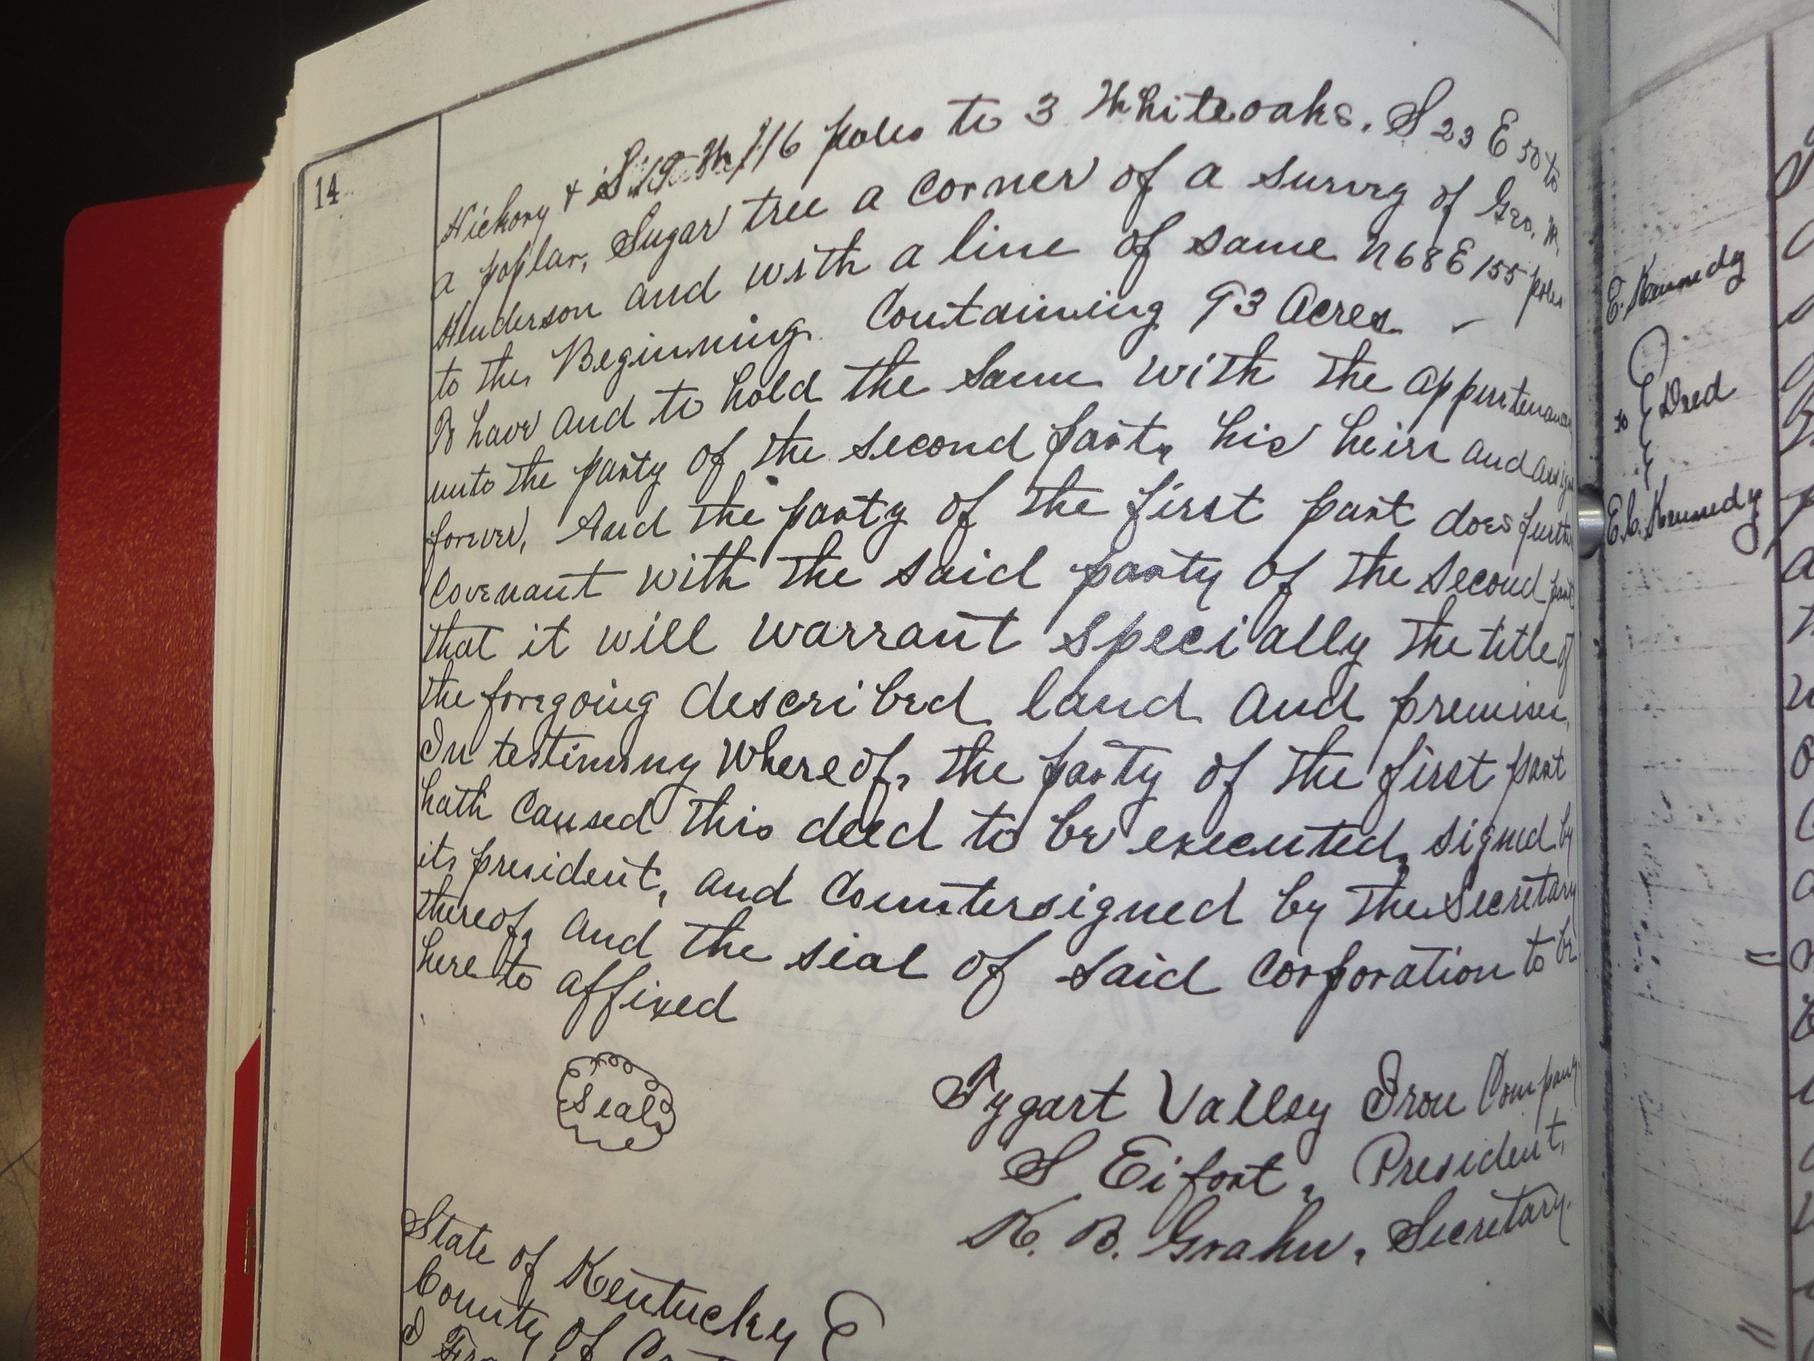 14
Hickory & S 19 W 116 poles to 3 Whiteoaks, S 23 E 50 to
a poplar, Sugar tree a corner of a survey of Geo. W.
Henderson and with a line of same N 68 E 155 poles
to the Beginning. Containing 93 Acres.
To have and to hold the same with the appurtenances
unto the party of the second part, his heirs and assigns
forever, And the party of the first part does further
Covenant with the said party of the second part
that it will warrant specially the title of
the foregoing described land and premises,
In testimony whereof, the party of the first part
hath caused this deed to be executed, signed by
its president, and countersigned by the Secretary
thereof, and the seal of said corporation to be
here to affixed
Seal
Tygart Valley Iron Company
S Eifort, President,
K. B. Grahn, Secretary.
State of Kentucky
County of
E. Kennedy
to Deed
E. C. Kennedy